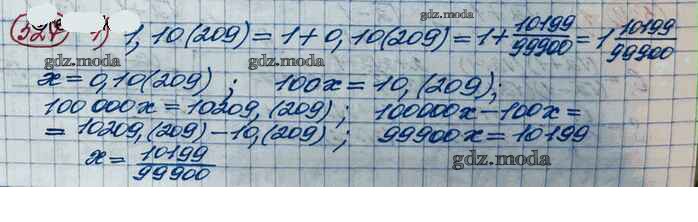 gdz.moda
1) 1,10(209) = 1 + 0,10(209) = 1 + 10199/99900 = 1 10199/99900
gdz.moda gdz.moda
x = 0,10(209) ; 100x = 10,(209);
100 000x = 10209,(209) ; 100000x - 100x =
= 10209,(209) - 10,(209) ; 99900x = 10199
x = 10199/99900
gdz.moda